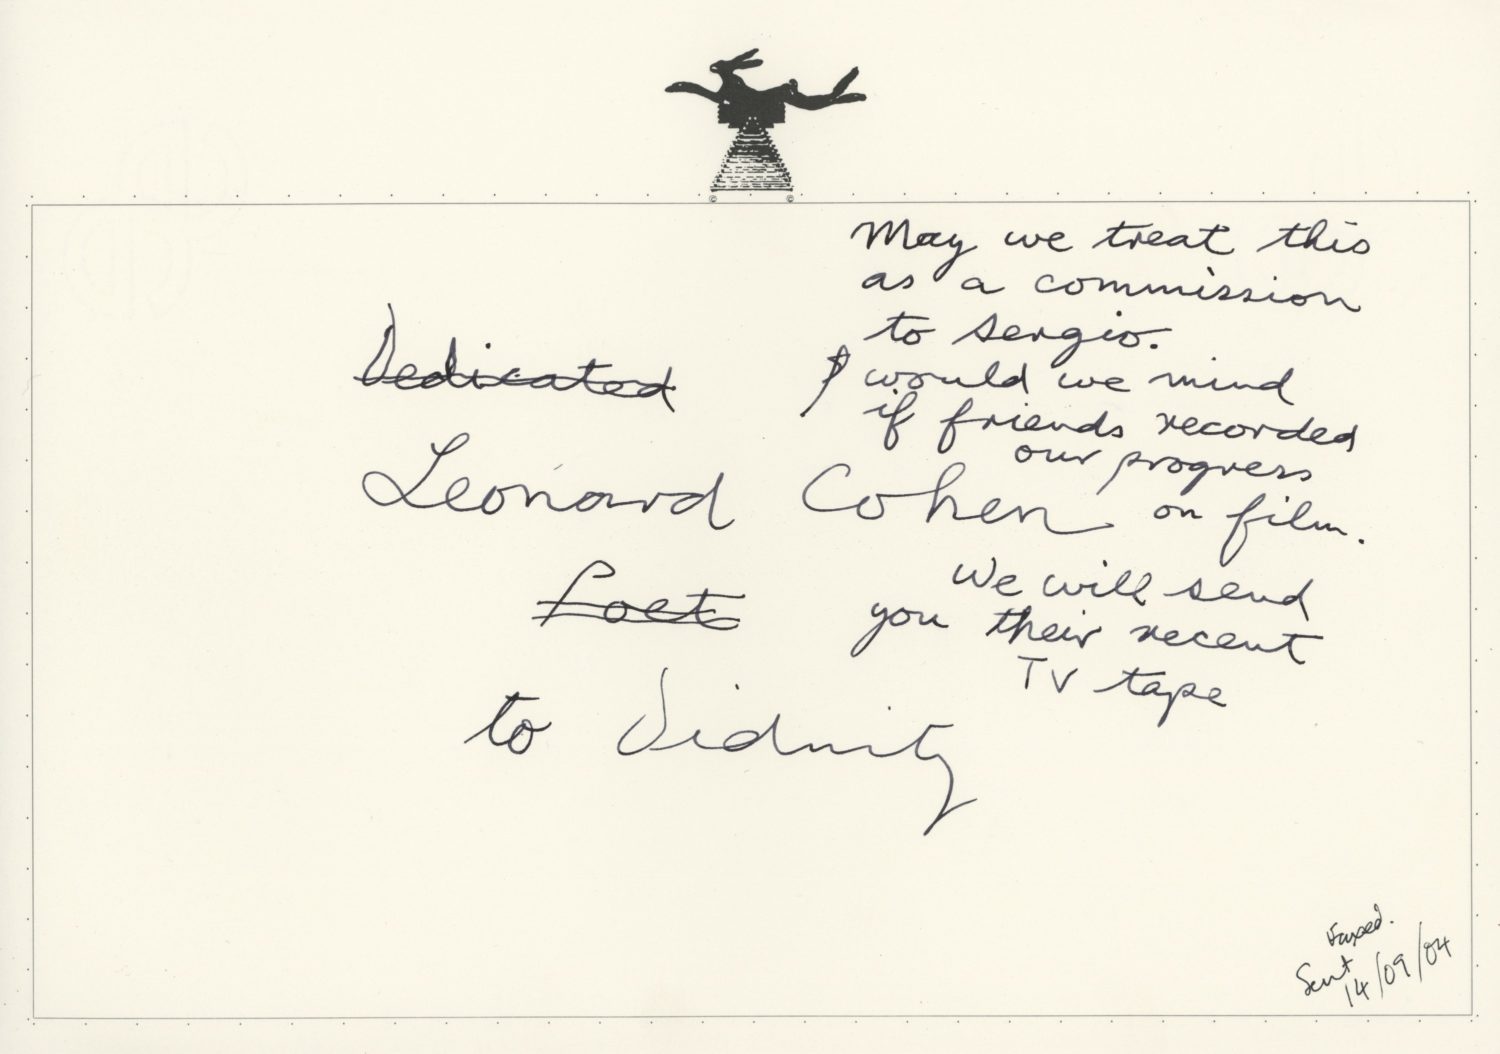 May we treat this
as a commission
to Sergio.
would we mind
if friends recorded
our progress
on film.
We will send
you their recent
TV tape
Dedicated
Leonard Cohen
Poet
to
Faxed.
Sent
14/09/04